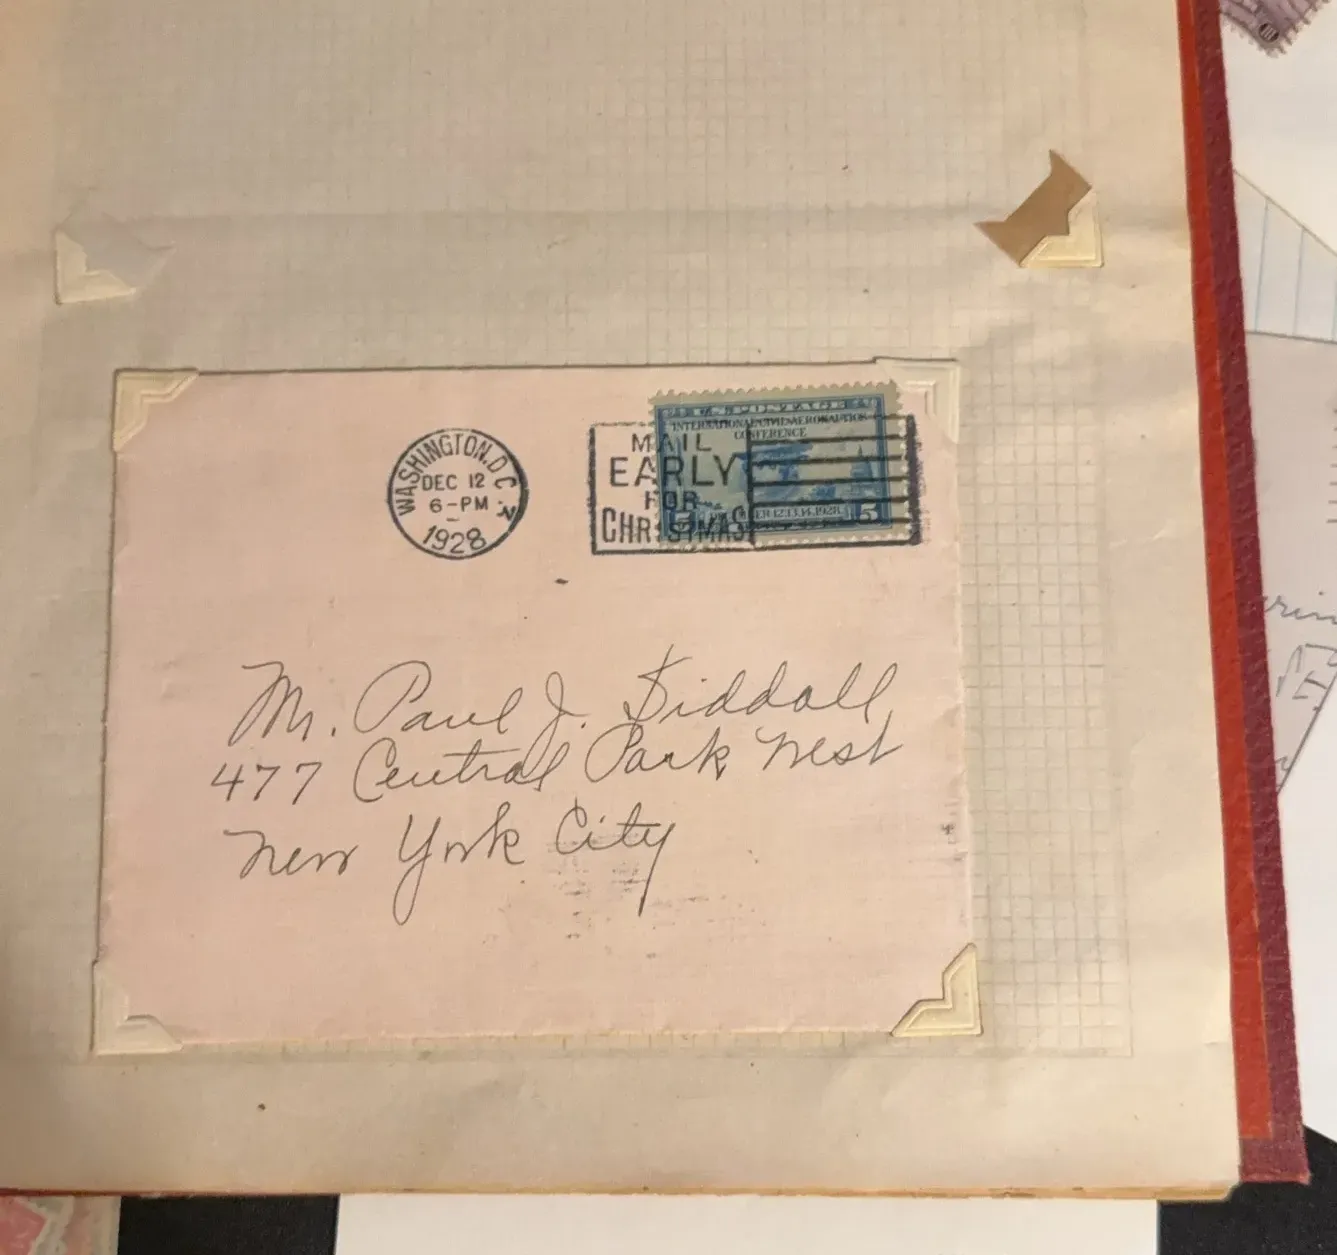 WASHINGTON, D.C.
DEC 12
6-PM
1928
MAIL
EARLY
FOR
CHRISTMAS
INTERNATIONAL CIVIL AERONAUTICS
CONFERENCE
12.13.14.1928
5 5
Mr. Paul J. Siddall,
477 Central Park West
New York City